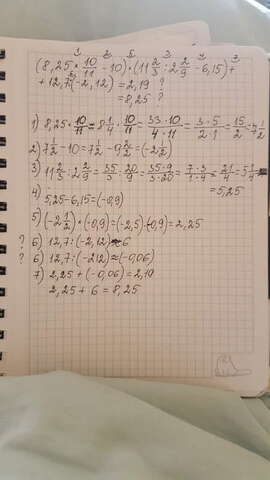 1 2 5 3 4 7
(8,25 * 10/11 - 10) * (11 2/3 : 2 2/9 - 6,15) +
+ 12,7 : (-2,12) = 2,19 ?
= 8,25 ?
1) 8,25 * 10/11 = 8 1/4 * 10/11 = 33·10/4·11 = 3·5/2·1 = 15/2 = 7 1/2
2) 7 1/2 - 10 = 7 1/2 - 9 2/2 = (-2 1/2)
3) 11 2/3 : 2 2/9 = 35/3 : 20/9 = 35·9/3·20 = 7·3/1·4 = 21/4 = 5 1/4 =
= 5,25
4) 5,25 - 6,15 = (-0,9)
5) (-2 1/2) * (-0,9) = (-2,5) * (-0,9) = 2,25
? 6) 12,7 : (-2,12) ≈ 6
? 6) 12,7 : (-212) ≈ (-0,06)
7) 2,25 + (-0,06) = 2,19
2,25 + 6 = 8,25